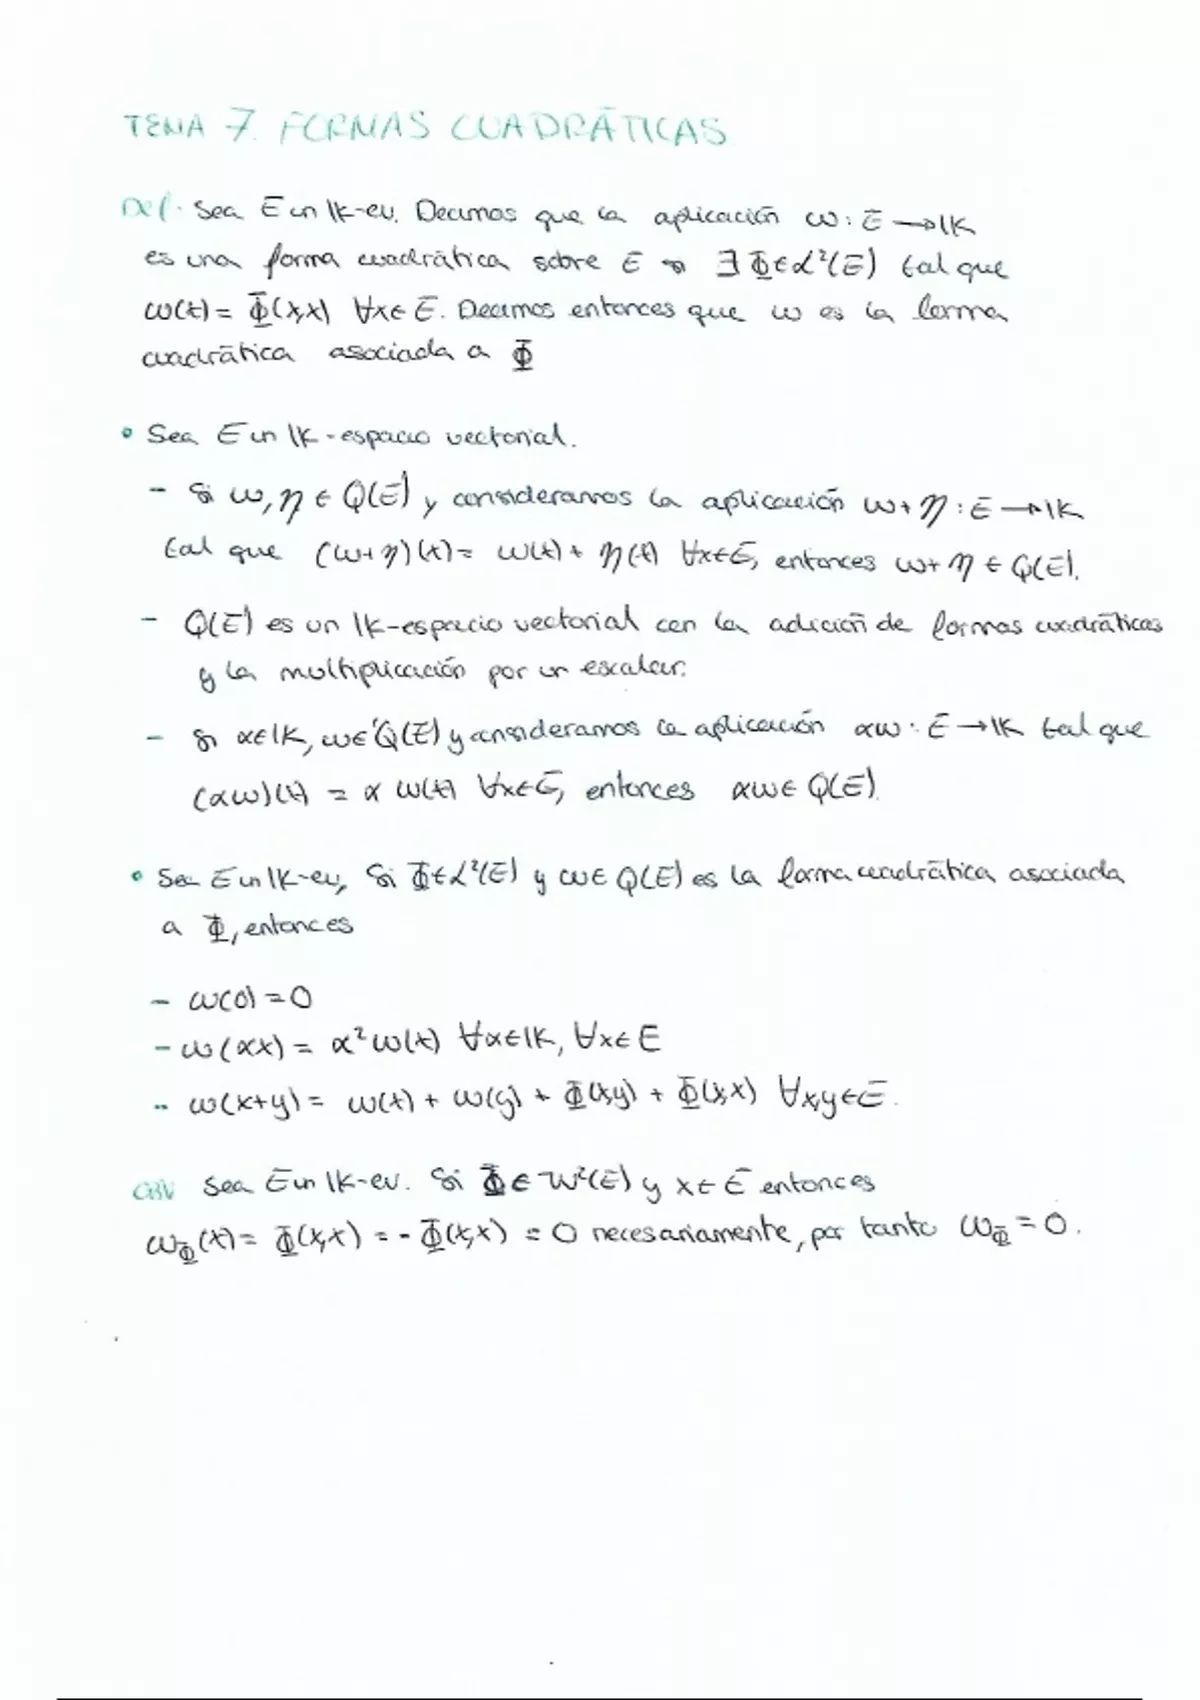 TEMA 7. FORMAS CUADRÁTICAS
Def. Sea E un K-ev. Decimos que la aplicación ω: E → K
es una forma cuadrática sobre E si ∃ Φ∈L²(E) tal que
ω(x) = Φ(x,x) ∀x∈E. Decimos entonces que ω es la forma
cuadrática asociada a Φ
• Sea E un K-espacio vectorial.
- Si ω, η ∈ Q(E) y consideramos la aplicación ω+η: E → K
tal que (ω+η)(x) = ω(x) + η(x) ∀x∈E, entonces ω+η ∈ Q(E).
- Q(E) es un K-espacio vectorial con la adición de formas cuadráticas
y la multiplicación por un escalar.
- Si α∈K, ω∈Q(E) y consideramos la aplicación αω: E → K tal que
(αω)(x) = α ω(x) ∀x∈E, entonces αω∈Q(E).
• Sea E un K-ev, Si Φ∈L²(E) y ω∈Q(E) es la forma cuadrática asociada
a Φ, entonces
- ω(0) = 0
- ω(αx) = α²ω(x) ∀α∈K, ∀x∈E
- ω(x+y) = ω(x) + ω(y) + Φ(x,y) + Φ(y,x) ∀x,y∈E.
OBV Sea E un K-ev. Si Φ∈W²(E) y x∈E entonces
ω_Φ(x) = Φ(x,x) = -Φ(x,x) = 0 necesariamente, por tanto ω_Φ = 0.